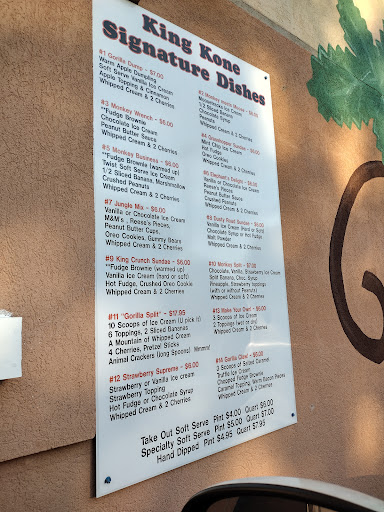 King Kone
Signature Dishes
#1 Gorilla Dump - $7.00
Warm Apple Dumpling
Soft Serve Vanilla Ice Cream
Apple Topping & Cinnamon
Whipped Cream & 2 Cherries
#3 Monkey Wrench - $6.00
**Fudge Brownie
Chocolate Ice Cream
Peanut Butter Sauce
Whipped Cream & 2 Cherries
#5 Monkey Business - $6.00
**Fudge Brownie (warmed up)
Twist Soft Serve Ice Cream
1/2 Sliced Banana, Marshmallow
Crushed Peanuts
Whipped Cream & 2 Cherries
#7 Jungle Mix - $6.00
Vanilla or Chocolate Ice Cream
M&M's, Reese's Pieces,
Peanut Butter Cups,
Oreo Cookies, Gummy Bears
Whipped Cream & 2 Cherries
#9 King Crunch Sundae - $6.00
**Fudge Brownie (warmed up)
Vanilla Ice Cream (hard or soft)
Hot Fudge, Crushed Oreo Cookie
Whipped Cream & 2 Cherries
#11 "Gorilla Split" - $17.95
10 Scoops of Ice Cream (U pick it)
6 Toppings, 2 Sliced Bananas
A Mountain of Whipped Cream
4 Cherries, Pretzel Sticks
Animal Crackers (long Spoons) Mmmm!
#12 Strawberry Supreme - $6.00
Strawberry or Vanilla Ice cream
Strawberry Topping
Hot Fudge or Chocolate Syrup
Whipped Cream & 2 Cherries
1/2 Sliced Banana
Chocolate Syrup
Peanuts
Whipped Cream & 2 Cherries
#4 Grasshopper Sundae - $6.00
Mint Chip Ice Cream
Hot Fudge
Oreo Cookies
Whipped Cream & 2 Cherries
Vanilla or Chocolate Ice Cream
Reese's Pieces
Peanut Butter Sauce
Crushed Peanuts
Whipped Cream & 2 Cherries
#8 Dusty Road Sundae - $6.00
Vanilla Ice Cream (Hard or Soft)
Chocolate Syrup or Hot Fudge
Malt Powder
Whipped Cream & 2 Cherries
#10 Monkey Split - $7.00
Chocolate, Vanilla, Strawberry Ice Cream
Split Banana, Choc. Syrup
Pineapple, Strawberry Toppings
(with or without Peanuts)
Whipped Cream & 2 Cherries
#13 Make Your Own! - $6.00
3 Scoops of Ice Cream
2 Toppings (wet or dry)
Whipped Cream & 2 Cherries
#14 Gorilla Claw! - $6.00
3 Scoops of Salted Caramel
Truffle Ice Cream
Chopped Fudge Brownie
Caramel Topping, Warm Pecan Pieces
Whipped Cream & 2 Cherries
Take Out Soft Serve Pint $4.00 Quart $6.00
Specialty Soft Serve Pint $5.00 Quart $7.00
Hand Dipped Pint $4.95 Quart $7.95
G